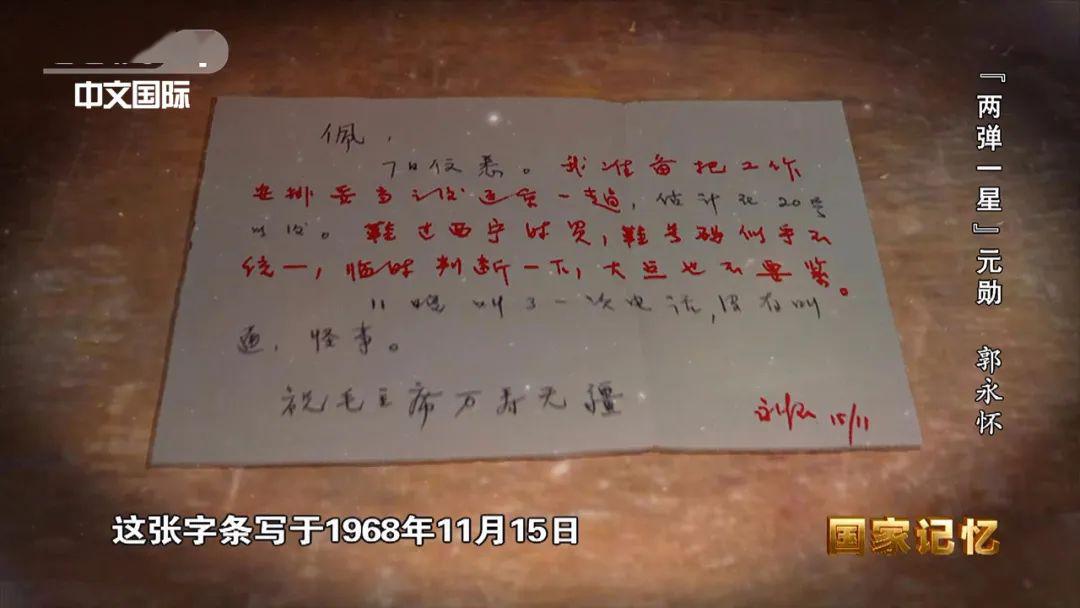 中文国际
『两弹一星』元勋 郭永怀
佩，
7日信悉。我准备把工作
安排妥当之后返京一趟，估计在20号
以后。鞋过西宁时买，鞋号码似乎不
统一，临时判断一下，大点也不要紧。
11晚叫了一次电话，没有叫
通，怪事。
祝毛主席万寿无疆
永怀 15/11
这张字条写于1968年11月15日
国家记忆